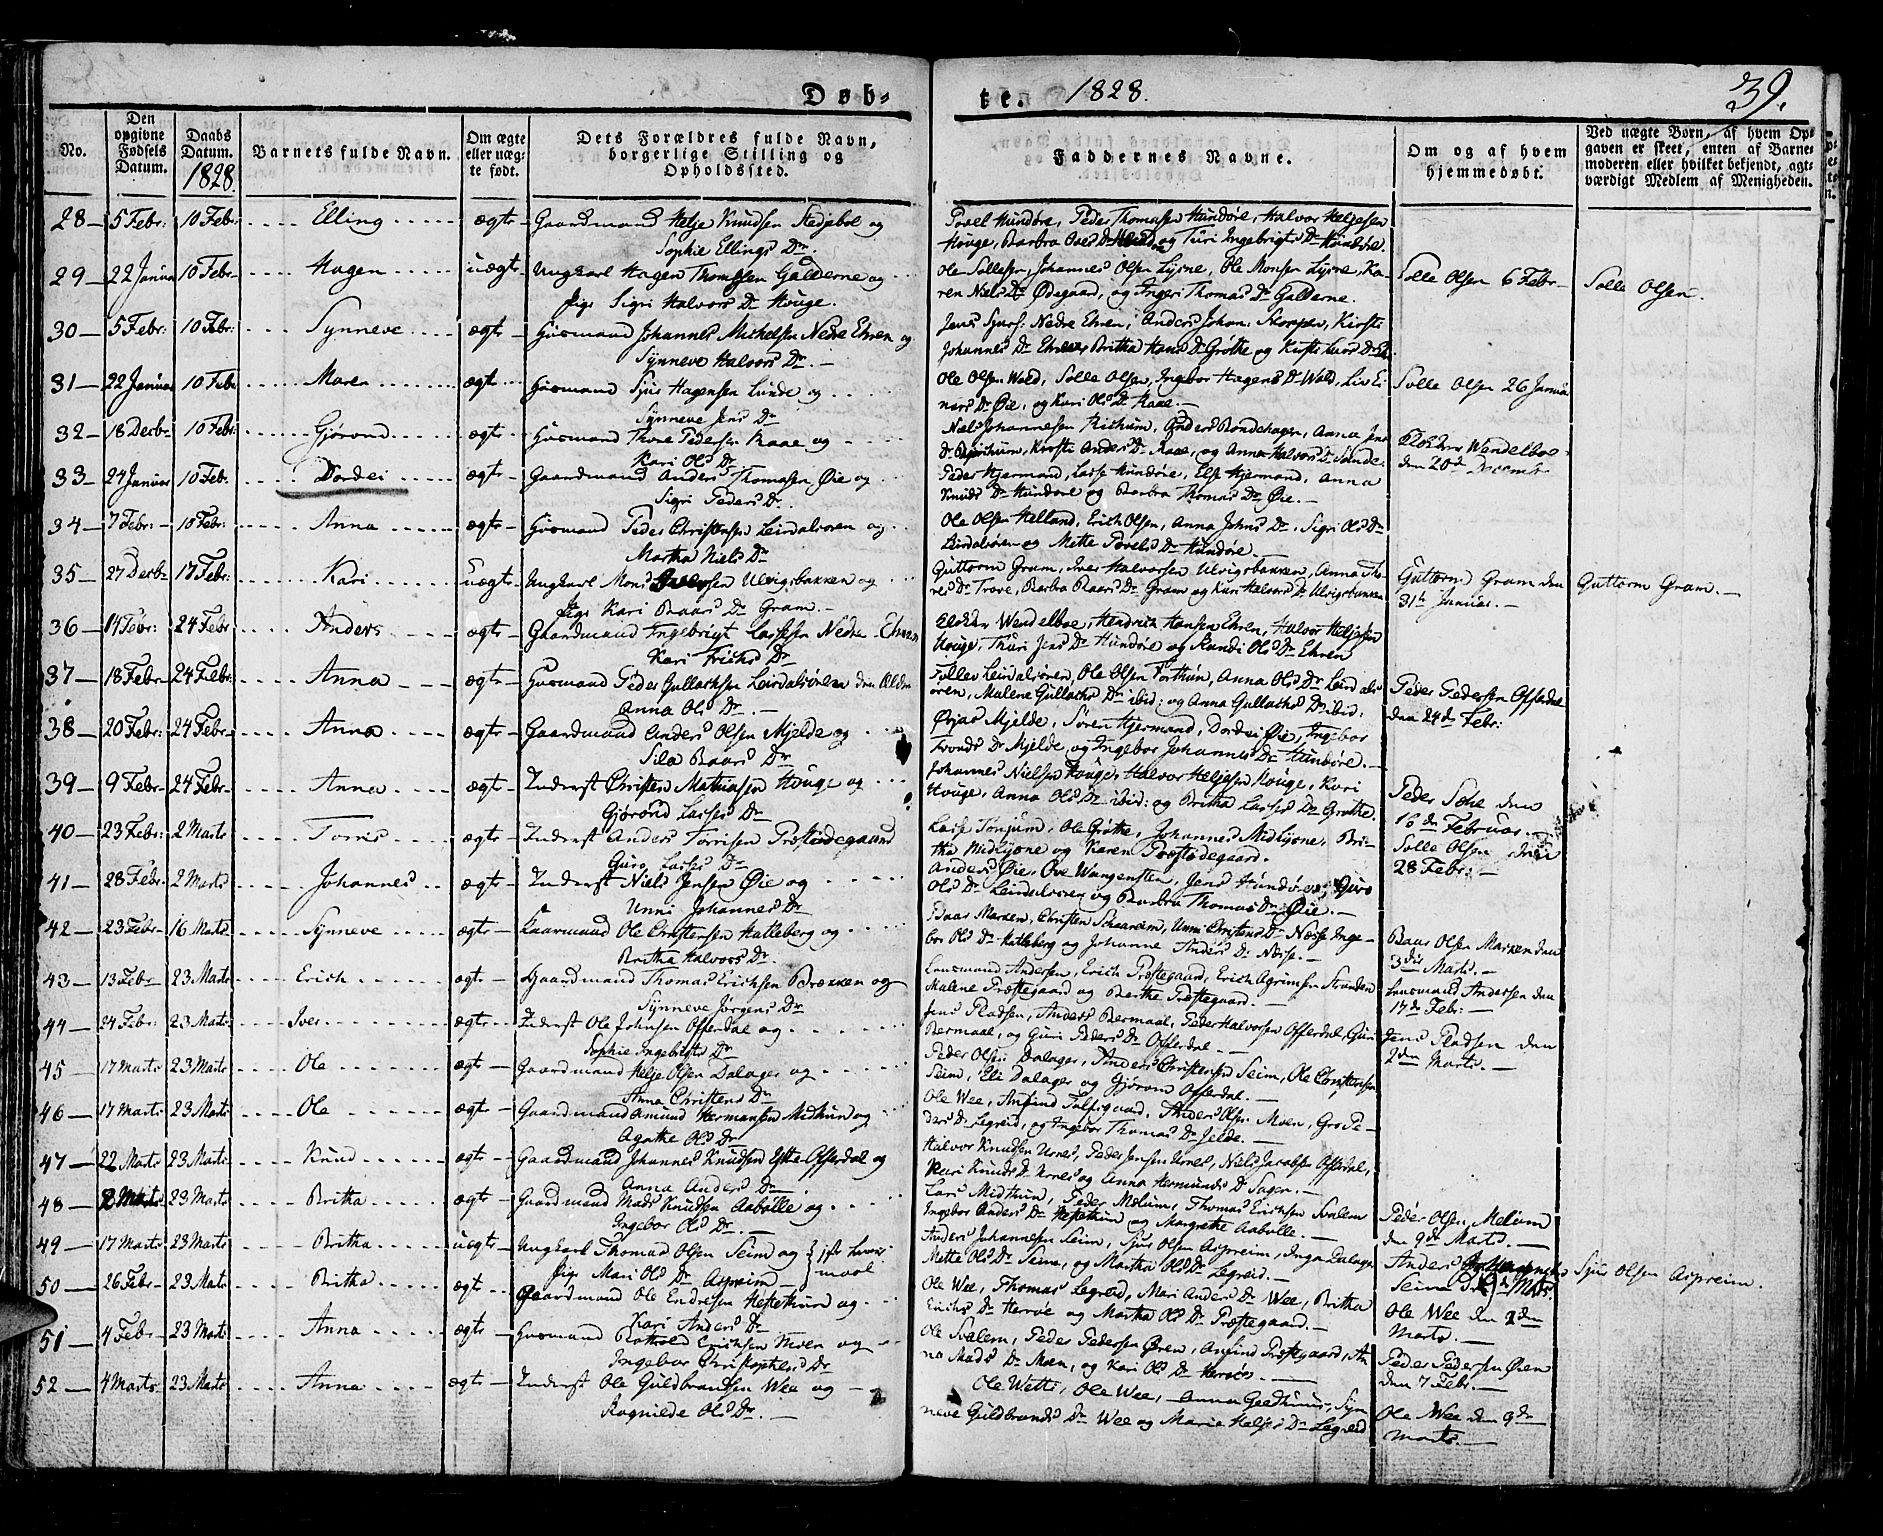 Døb-
te. 1828.
39.
No.
Den opgivne Fødsels Datum.
Daabs Datum. 1828.
Barnets fulde Navn.
Om ægte eller uægte født.
Dets Forældres fulde Navn, borgerlige Stilling og Opholdssted.
Faddernes Navne.
Om og af hvem hjemmedøbt.
Ved uægte Børn, af hvem Opgaven er skeet, enten af Barnemoderen eller hvilket bekjendt, agtværdigt Medlem af Menigheden.
28 — 5 Febr: 10 Febr: Elling ægte Gaardmand Helje Knudsen og
Sophie Ellings Dr
Povel Hundøre, Peder Thomasen Hundøre, Halvor Heljesen
Houge, Barbra og Turi Ingebrigts Dr Hundøre.
29 — 22 Januar 10 Febr Hagen uægte Ungkarl Hagen Thomesen Galderne og
Pige Sigri Halvors Dr Houge.
Ole Sollesen, Johannes Olsen Lysne, Ole Monsen Lysne, Ka-
ren Niels Dr Ødegaard, og Ingeri Thomas Dr Galderne.
Solle Olsen 6 Febr
Solle Olsen.
30 — 5 Febr: 10 Febr: Synneve ægte Huusmand Johannes Michelsen Nedre Ehren og
Synneve Halvors Dr. —
Jens Nedre Ehren, Anders Johan: Kirsti
Johannes Dr Ehren Britha Hans Dr Grøthe og
31 — 22 Januar 10 Febr Maren ægte Huusmand Sjur Hagensen Lunde og
Synneve Jens Dr
Ole Olsen Wold, Solle Olsen, Ingebor Hagens Dr Wold, Liv Ei-
nars Dr Øie, og Kari Ols Dr Raae. —
Solle Olsen 26 Januar
32 — 18 Decbr 10 Febr: Gjørond ægte Huusmand Thore Pedersen Raae og
Kari Ols Dr
Niels Johannesen Rithum, Anders Anna Jens
Dr Rithum, Kirsti Anders Dr Raae, og Anna Halvors Dr Sande.
Klokker Wendelboe
den 20de Decembr
33 — 24 Januar 10 Febr. Dordei ægte Gaardmand Anders Thomasen Øie og
Sigri Peders Dr
Peder Hjermand, Lasse Hundøre, Else Hjermand, Anna
Knuds Dr Hundøre og Barbra Thomas Dr Øie. —
34 — 7 Febr: 10 Febr: Anna ægte Huusmand Peder Christensen Leirdalsøren og
Martha Niels Dr
Ole Olsen Helland, Erich Olsen, Anna Johns Dr, Sigri Ols Dr
Leirdalsøren og Mette Povels Dr Hundøre.
35 — 27 Decbr 17 Febr: Kari uægte Ungkarl Mons Ulvigsbakken og
Pige Kari Baars Dr Gram. —
Guttorm Gram, Iver Halvorsen Ulvigsbakken, Anna Tho-
res Dr Trave, Barbra Baars Dr Gram og Kari Halvors Dr Ulvigsbakken
Guttorm Gram den
31te Januar. —
Guttorm Gram. —
36 — 14 Febr: 24 Febr Anders ægte Gaardmand Ingebrigt Lassesen Nedre Ehren
Kari Erichs Dr
Klokker Wendelboe, Hendrich Hansen Ehren, Halvor Heljesen
Houge, Thuri Jens Dr Hundøre og Randi Ols Dr Ehren
37 — 18 Febr 24 Febr: Anna ægte Huusmand Peder Gullachsen Leirdalsøren den Ældre
Anna Ols Dr. —
Tollev Leirdalsøren, Ole Olsen Forthun, Anna Ols Dr Leirdals-
øren, Malene Gullachs Dr ibid: og Anna Gullachs Dr ibid:
Peder Pedersen Offerdal
den 24de Febr:
38 — 20 Febr: 24 Febr Anna ægte Gaardmand Anders Olsen Mjelde og
Sila Baars Dr
Ørjas Mjelde, Søren Hjermand, Dordei Øie, Ingebor
Tronds Dr Mjelde, og Ingebor Johannes Dr Hundøre. —
39 — 9 Febr 24 Febr. Anna ægte Inderst Christen Mathiasen Houge og
Gjørond Lasses Dr
Johannes Nielsen Houge, Halvor Heljesen Houge, Kari
Houge, Anna Ols Dr ibid: og Britha Lasses Dr Grøthe.
Peder den
16de Februar.
40 — 23 Febr: 2 Marts Torris ægte Inderst Anders Torrisen Præstødegaard
Guro Lasses Dr
Lasse Tønjum, Ole Grøthe, Johannes Midljøne, Bri-
tha Midljøne og Karen Præstødegaard.
Solle Olsen den
28 Febr: —
41 — 28 Febr. 2 Marts Johannes ægte Inderst Niels Jensen Øie og
Unni Johannes Dr
Anders Øie, Ove Wangensten, Jens Hundøre, Guro
Ols Dr Leirdalsøren og Barbra Thomas Dr Øie. —
42 — 23 Febr 16 Marts Synneve ægte Huusmand Ole Christensen Hatleberg og
Britha Halvors Dr.
Baar Marken, Christen Unni Christens Dr Næsse, Inge-
bor Ols Dr Hatleberg og Johanne Anders Dr Næsse. —
Baar Olsen Marken den
3die Marts. —
43 — 13 Febr 23 Marts Erich ægte Gaardmand Thomas Erichsen Brækken og
Synneve Jørgens Dr
Lensmand Andersen, Erich Præstegaard, Erich Agrimsen Stranden
Malene Præstegaard og Berthe Præstegaard. —
Lensmand Andersen den
17de Feb: —
44 — 24 Febr: 23 Marts Iver ægte Inderst Ole Johnsen Offerdal og
Sophie Ingebrigts Dr
Jens Pladsen, Anders Bermaal, Peder Halvorsen Offerdal, Guri
Bermaal, og Guri Peders Dr Offerdal. —
Jens Pladsen den
2den Marts. —
45 — 17 Marts 23 Marts Ole ægte Gaardmand Helje Olsen Dalager og
Anna Christens Dr
Peder Olsen Dalager, Anders Christensen Seim, Ole Christensen
Seim, Eli Dalager og Gjørond Offerdal. —
46 — 17 Marts 23 Marts Ole ægte Gaardmand Amund Hermansen Midthun og
Agathe Ols Dr
Ole Wee, Anfind Anders Olsen Moen, Gro Pe-
ders Dr Legreid, og Ingebor Thomas Dr Jelde. —
47 — 22 Marts 23 Marts Knud ægte Gaardmand Johannes Knudsen Offerdal og
Anna Anders Dr
Halvor Knudsen Urnes, Peder Jensen Urnes, Niels Jacobsen Offerdal,
Kari Knuds Dr Urnes og Anna Hermunds Dr —
48 — 2 Marts 23 Marts Britha ægte Gaardmand Mads Knudsen Aabølle og
Ingebor Ols Dr. —
Lars Midthun, Peder Melum, Thomas Erichsen Svalem
Ingebor Anders Dr Heftethun og Margrethe Aabølle. —
Peder Olsen Melum
den 9de Marts. —
49 — 17 Marts 23 Marts Britha uægte Ungkarl Thomas Olsen Seim og } 1ste Leier-
Pige Mari Ols Dr Aspreim — } maal
Anders Johannesen Seim, Sjur Olsen Aspreim, Inga Dalager
Mette Ols Dr Seim, og Martha Ols Dr Legreid. —
Anders Johannesen
Seim Marts.
Sjur Olsen Aspreim.
50 — 26 Febr 23 Marts Britha ægte Gaardmand Ole Endresen Heftethun og
Kari Anders Dr
Ole Wee, Thomas Legreid, Mari Anders Dr Wee, Britha
Erichs Dr Herrøe og Martha Ols Dr Præstegaard. —
Ole Wee den 2den
Marts. —
51 — 4 Febr 23 Marts Anna ægte Huusmand Botholf Erichsen Moen og
Ingebor Christophers Dr
Ole Svalem, Peder Pedersen Øren, Anfind Præstegaard, An-
na Mads Dr Moen, og Kari Ols Dr Herrøe. —
Peder Pedersen Øren
den 7 Febr. —
52 — 4 Marts 23 Marts Anna ægte Inderst Ole Guldbrandsen Wee og
Ragnilde Ols Dr. —
Ole Wetti, Ole Wee, Anna Syn-
neve Guldbrands Dr Wee og Marie Heljes Dr Legreid
Ole Wee den 9de
Marts. —